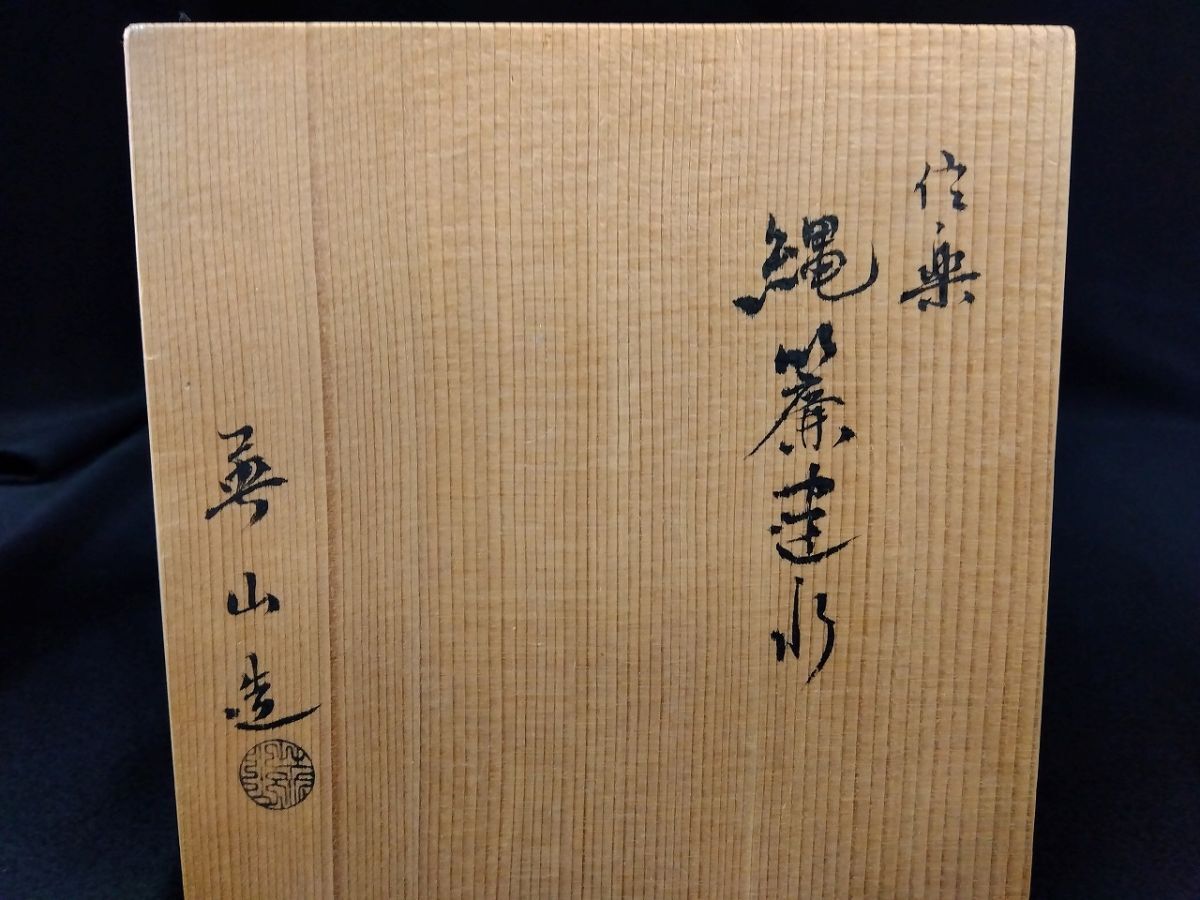 信楽
縄簾建水
山造